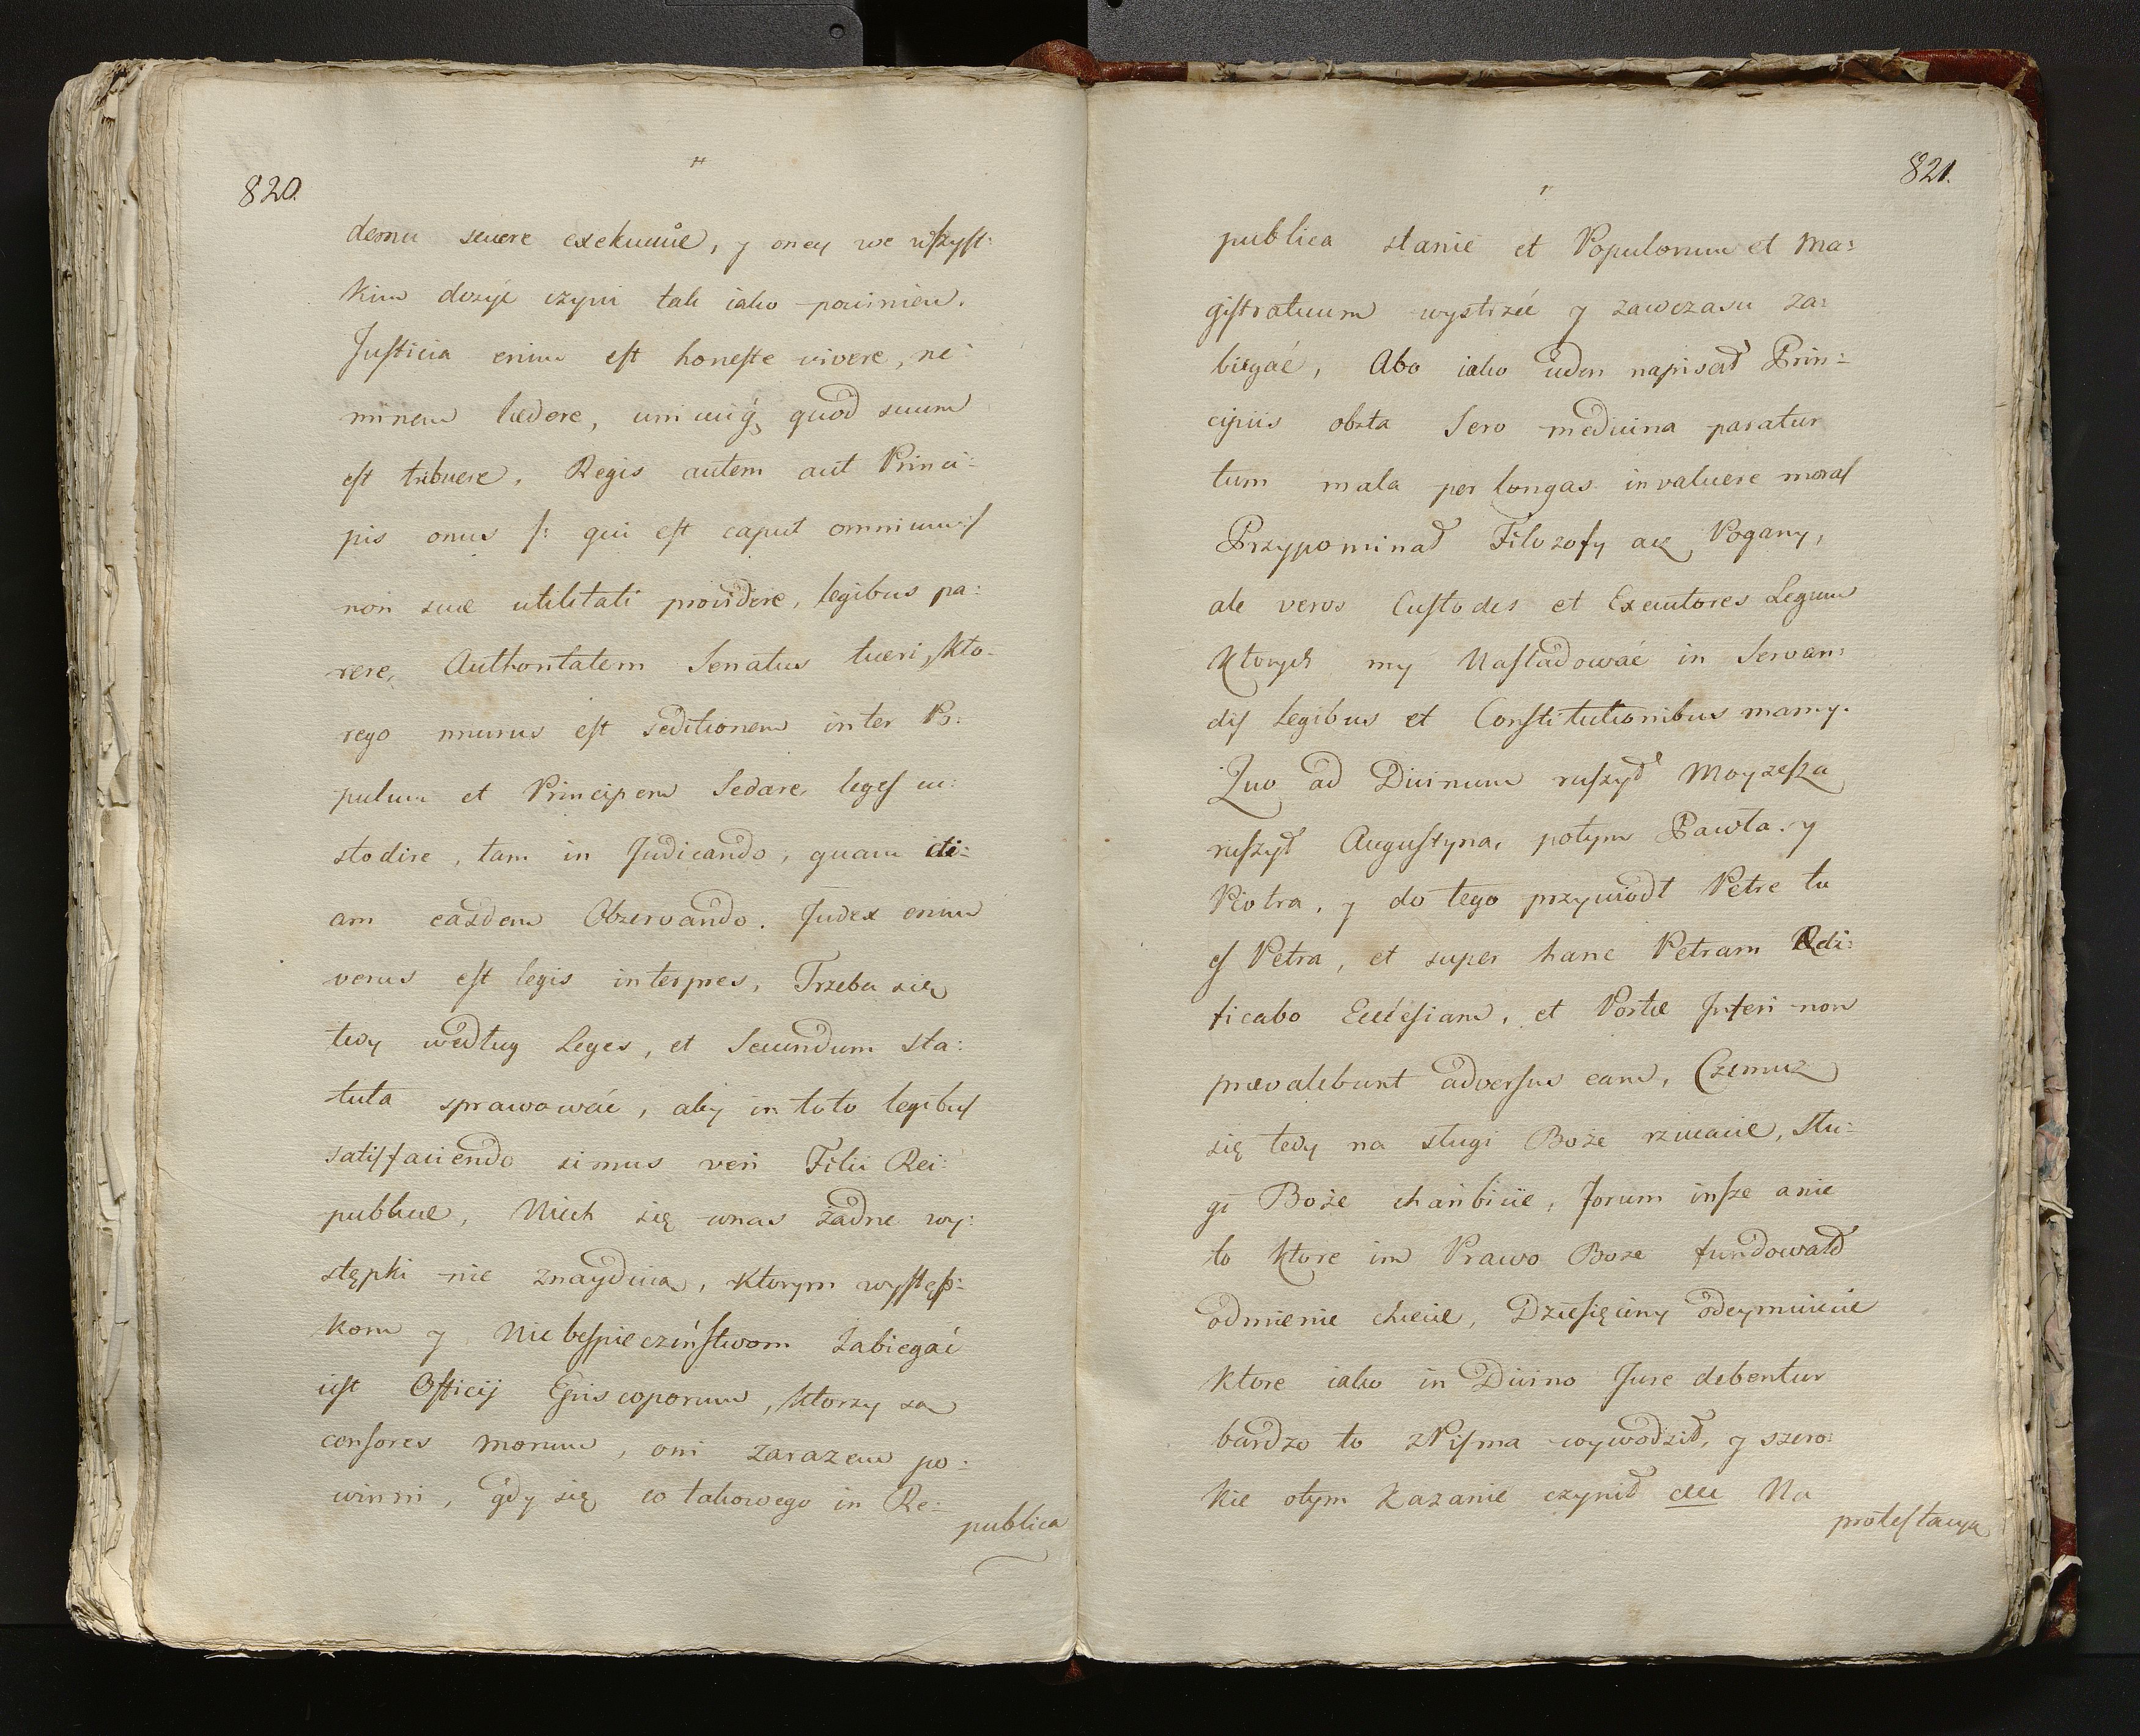 820.
demu severe exekuuie, y oney we wszyst:
kim dosyć czyni tak iako powinien.
Justicia enim est honeste vivere, ne:
minem lædere, unicuiq, quod suum
est tribuere, Regis autem aut Princi:
pis onus /: qui est caput omnium :/
non suæ utilitati providere, legibus pa:
rere, Authoritatem Senatus tueri, kto-
rego munus est seditionem inter Po:
pulum et Principem Sedare, leges cu:
stodire, tam in Judicando, quam eti:
am easdem Obzervando. Judex enim
verus est legis interpres, Trzeba się
tedy według Leges, et Secundum Sta:
tuta sprawować, aby in toto legibus
satisfaciendo simus veri Filii Rei:
publicæ, Niech się unas żadne wy:
stępki nie znayduią, ktorym występ:
kom y Niebespieczeństwom zabiegać
iest Officij Episcoporum, ktorzy są
censores morum, oni zarazem po:
winni, gdy się co takowego in Re:
publica
821.
publica stanie et Populorum et Ma:
gistratuum wystrzedz y zawczasu za:
biegać, Abo iako ieden napisał Prin:
cipiis obsta Sero medicina paratur
tum mala per longas invaluere moras
Przypominał Filozofy acz Pogany,
ale veros Custodes et Executores Legum
Ktorych my Nasladować in Servan:
dis legibus et Constitutionibus mamy.
Quo ad Divinum ruszył Moyzesza
ruszył Augustyna, potym Pawła. y
Piotra, y do tego przywiodł Petre tu
es Petra, et super hanc Petram Ædi:
ficabo Ecclesiam, et Portæ Inferi non
prævalebunt adversus eam, Czemuz
się tedy na sługi Boże rzucacie, słu:
gi Boże chańbicie, forum insze anie
to ktore im Prawo Boze fundowało
odmienie chcecie, Dziesięciny odeymuiecie
ktore iako in Divino Jure debentur
bardzo to z Pisma wywodził, y szero:
kie otym Kazanie czynił etc Na
protestacyą